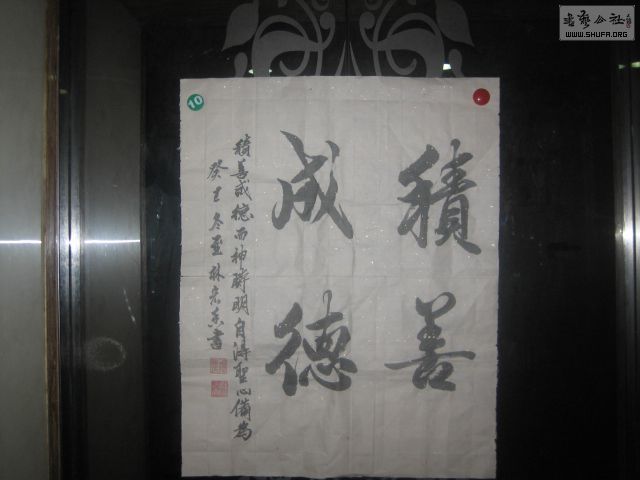 書藝公社
WWW.SHUFA.ORG
10
積善
成德
積善成德而神明自得聖心備焉
癸巳冬至林書